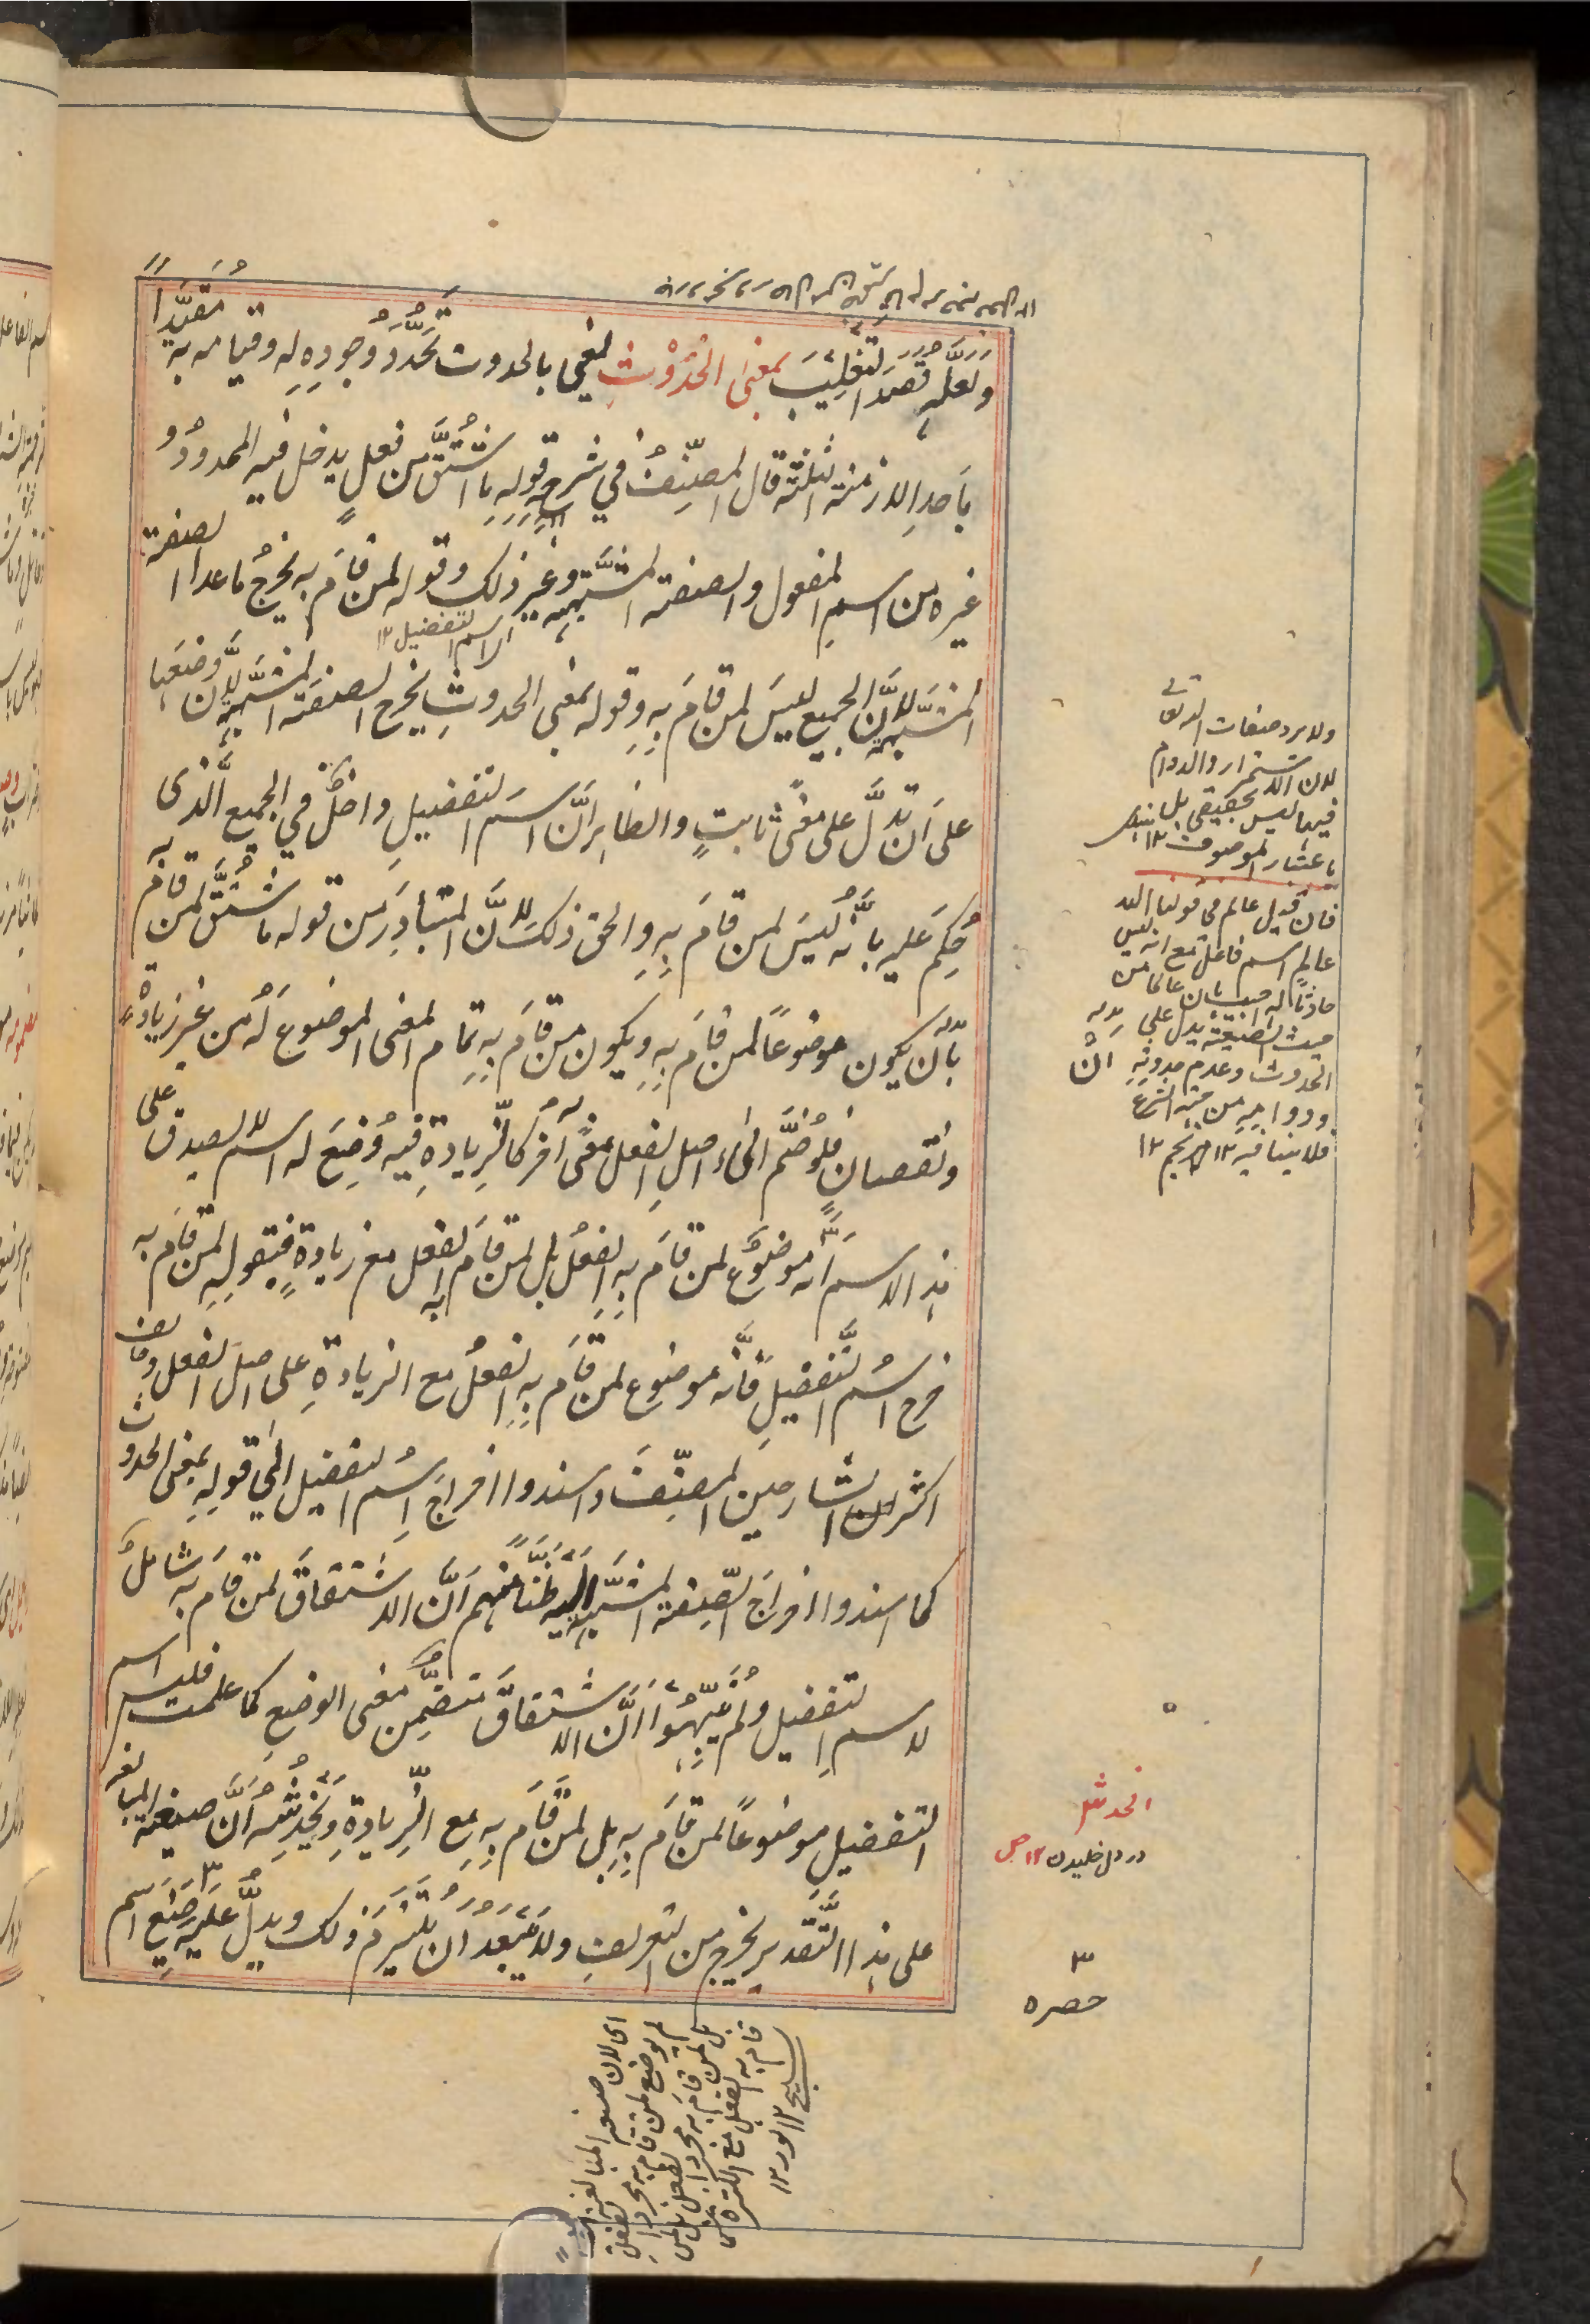 ولعله قصد التغليب بمعنى الحدوث يعني بالحدوث تجدد وجوده له وقيامه به مقيدا
باحد الازمنة الثلثة قال المصنف في شرحه قوله ما اشتق من فعل يدخل فيه المحدود و
غيره من اسم المفعول والصفة المشبهة وغير ذلك وقوله لمن قام به يخرج ما عدا الصفة
المشبهة لان الجميع ليس لمن قام به وقوله بمعنى الحدوث يخرج الصفة المشبهة لان وضعها
على ان تدل على معنى ثابت والظاهر ان اسم التفضيل داخل في الجميع الذي
حكم عليه بانه ليس لمن قام به والحق ذلك لان المتبادر من قوله ما اشتق لمن قام به
بان يكون موضوعا لمن قام به ويكون من قام به تمام المعنى الموضوع له من غير زيادة
ونقصان فلو ضم الى اصل الفعل معنى آخر كالزيادة فيه وضع له اسم لا يصدق على
هذا الاسم انه موضوع لمن قام به الفعل بل لمن قام به الفعل مع زيادة فبقوله لمن قام به
خرج اسم التفضيل فانه موضوع لمن قام به الفعل مع الزيادة على اصل الفعل وخالف
اكثر الشارحين المصنف واسندوا اخراج اسم التفضيل الى قوله بمعنى الحدوث
كما اسندوا اخراج الصفة المشبهة اليه ظنا منهم ان الاشتقاق لمن قام به شامل
لاسم التفضيل ولم ينبهوا ان الاشتقاق متضمن معنى الوضع كما علمت فليس اسم
التفضيل موضوعا لمن قام به بل لمن قام به مع الزيادة ويخدشه ان صيغة المبالغة
على هذا التقدير يخرج من التعريف ولا يبعد ان يلتزم ذلك ويدل عليه صنيع اسم
اى اسم التفضيل ١٢
ولا يرد صفات الله تعالى
لان الاستمرار والدوام
فيها ليس بحقيقى بل
باعتبار الموصوف ١٢
فان قيل عالم فى قولنا الله
عالم اسم فاعل مع انه ليس
حادثا له اجيب بان عالما من
حيث الصيغة يدل على
الحدوث وعدم حدوثه
ودوامه من حيث الشرع
فلا ينافيه ١٢
الخدش
در دل خليدن ١٢ ص
٣
حصره
اى لان صيغة المبالغة
لم يوضع لمن قام به مجرد الفعل
بل لمن قام به
قام به الفعل مع الكثرة